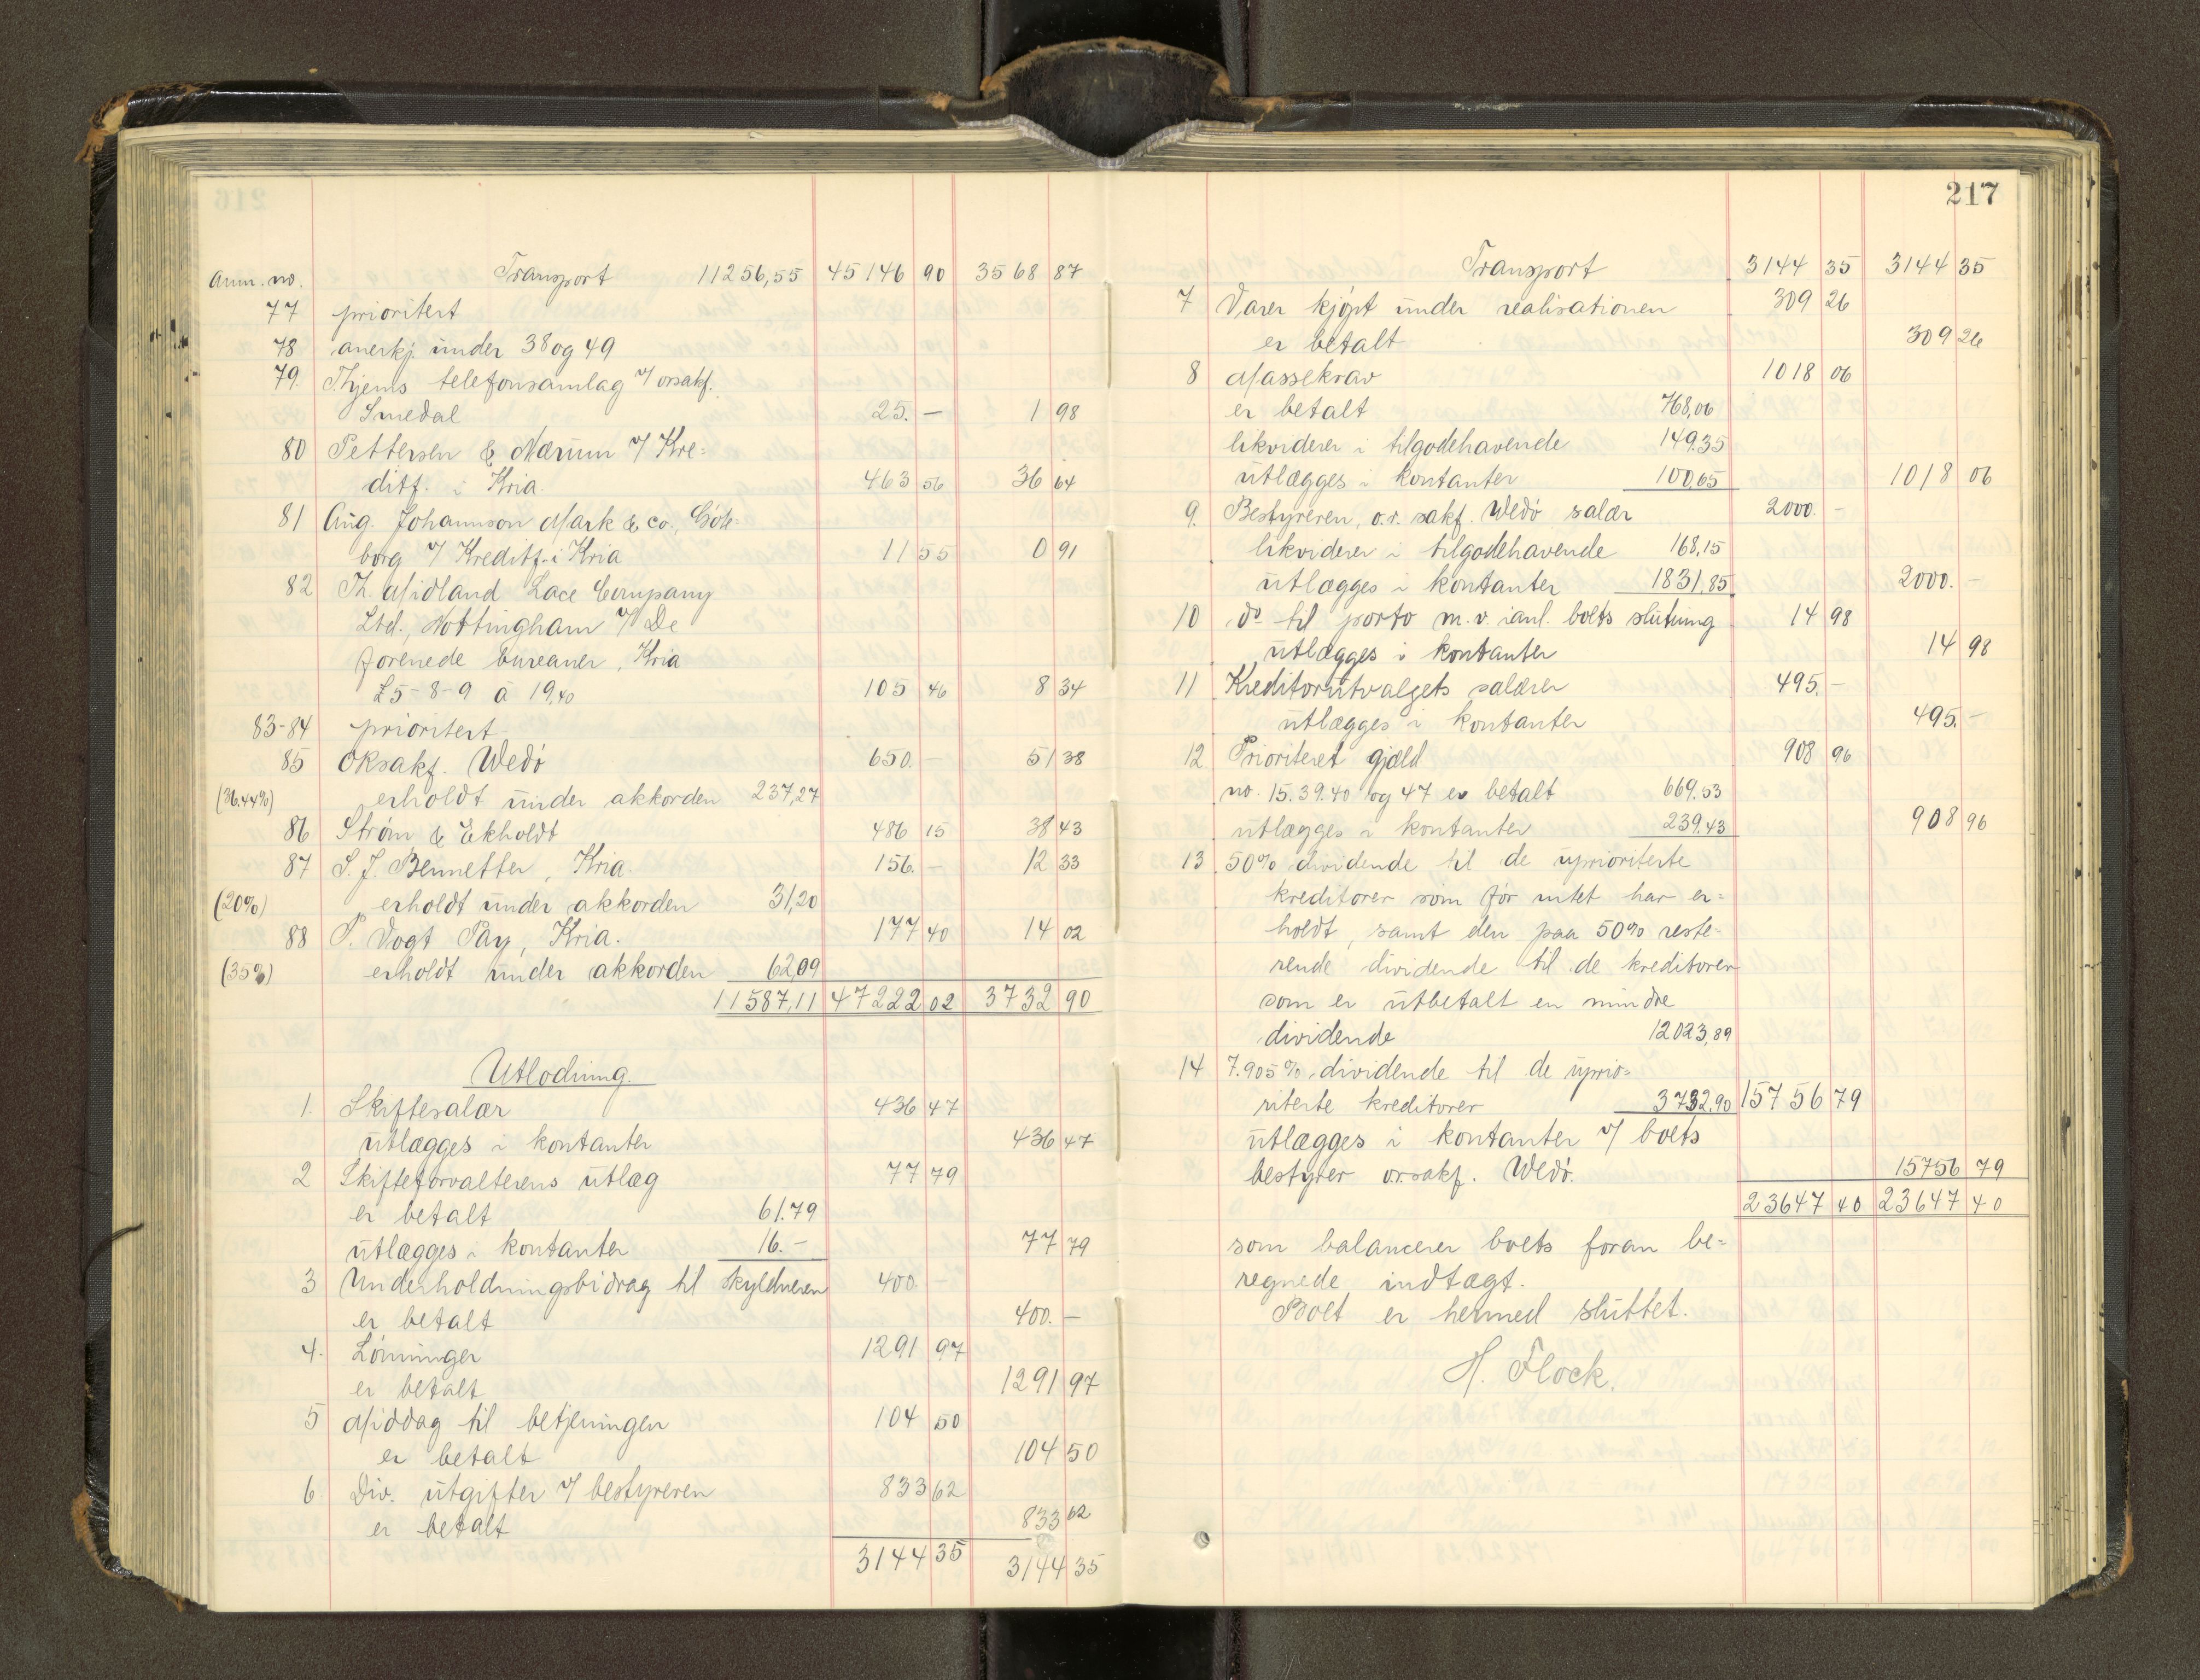 Anm. no. Transport 11256,55 45146 90 3568 87
77 prioritert
78 anerkj. under 38 og 49
79. Thjems telefonsamlag v/ orsakf.
Smedal 25. - 1 98
80 Pettersen & Nærum v/ Kre=
ditf. i Kria. 463 56 36 64
81 Aug. Johannson Mark & co., Göte=
borg v/ Kreditf. i Kria 11 55 0 91
82 Th. Midland Lace Company
Ltd., Nottingham v/ De
forenede bureauer, Kria
£ 5-8-9 à 19,40 105 46 8 34
83-84 prioritert
85 Oksakf. Wedø 650. - 51 38
(36.44%) erholdt under akkorden 237,27
86 Strøm & Ekholdt 486 15 38 43
87 S. J. Bennetter, Kria. 156. - 12 33
(20%) erholdt under akkorden 31,20
88 P. Vogt Pay, Kria. 177 40 14 02
(35%) erholdt under akkorden 62,09
11587,11 47222 02 3732 90
Utlodning.
1. Skiftesalær 436 47
utlægges i kontanter 436 47
2 Skifteforvalterens utlæg 77 79
er betalt 61.79
utlægges i kontanter 16. - 77 79
3 Underholdningsbidrag til skyldneren 400. -
er betalt 400. -
4. Lønninger 1291 97
er betalt 1291 97
5 Middag til betjeningen 104 50
er betalt 104 50
6 Div. utgifter v/ bestyreren 833 62
er betalt 833 62
3144 35 3144 35
217
Transport 3144 35 3144 35
7 Varer kjøpt under realisationen 309 26
er betalt 309 26
8 Massekrav 1018 06
er betalt 768,06
likviderer i tilgodehavende 149.35
utlægges i kontanter 100,65 1018 06
9. Bestyreren, o.r. sakf. Wedø salær 2000. -
likviderer i tilgodehavende 168,15
utlægges i kontanter 1831,85 2000. -
10 do til porto m.v. i anl. boets slutning 14 98
utlægges i kontanter 14 98
11 Kreditorutvalgets salærer 495. -
utlægges i kontanter 495. -
12 Prioritert gjæld 908 96
no. 15. 39. 40 og 47 er betalt 669.53
utlægges i kontanter 239.43 908 96
13 50% dividende til de uprioriterte
kreditorer som før intet har er=
holdt, samt den paa 50% reste=
rende dividende til de kreditorer
som er utbetalt en mindre
dividende 12023,89
14 7.905% dividende til de uprio=
riterte kreditorer 3732,90 15756 79
utlægges i kontanter v/ boets
bestyrer o.r.sakf. Wedø. 15756 79
23647 40 23647 40
som balancerer boets foran be=
regnede indtægt.
Boet er hermed sluttet.
H. Flock.